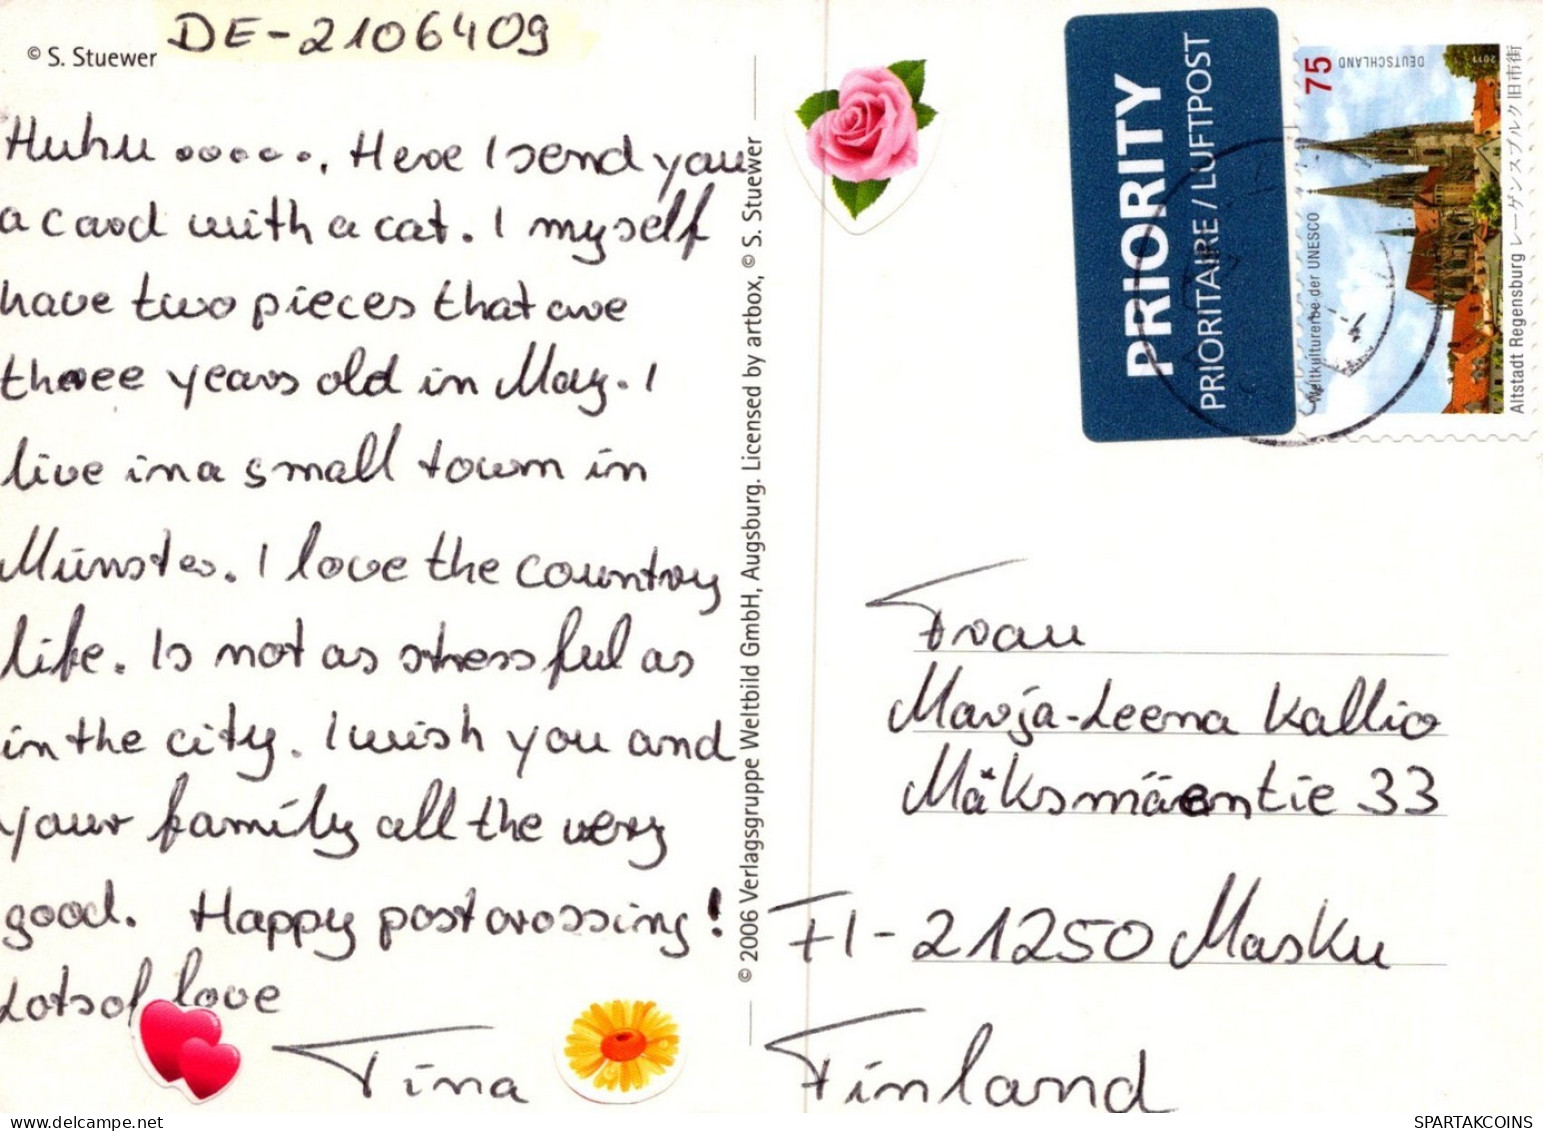 DE-2106409
© S. Stuewer
Huhu ......, Here I send you
a card with a cat. I myself
have two pieces that are
threee years old in May. I
live in a small town in
Münster. I love the country
life. Is not as stressful as
in the city. I wish you and
your family all the very
good. Happy postcrossing!
Lots of love
Tina
© 2006 Verlagsgruppe Weltbild GmbH, Augsburg. Licensed by artbox, © S. Stuewer
PRIORITY
PRIORITAIRE / LUFTPOST
75
DEUTSCHLAND
2011
Weltkulturerbe der UNESCO
Altstadt Regensburg レーゲンスブルク旧市街
Frau
Marja-Leena Kallio
Mäksmäentie 33
FI-21250 Masku
Finland
SPARTAKCOINS